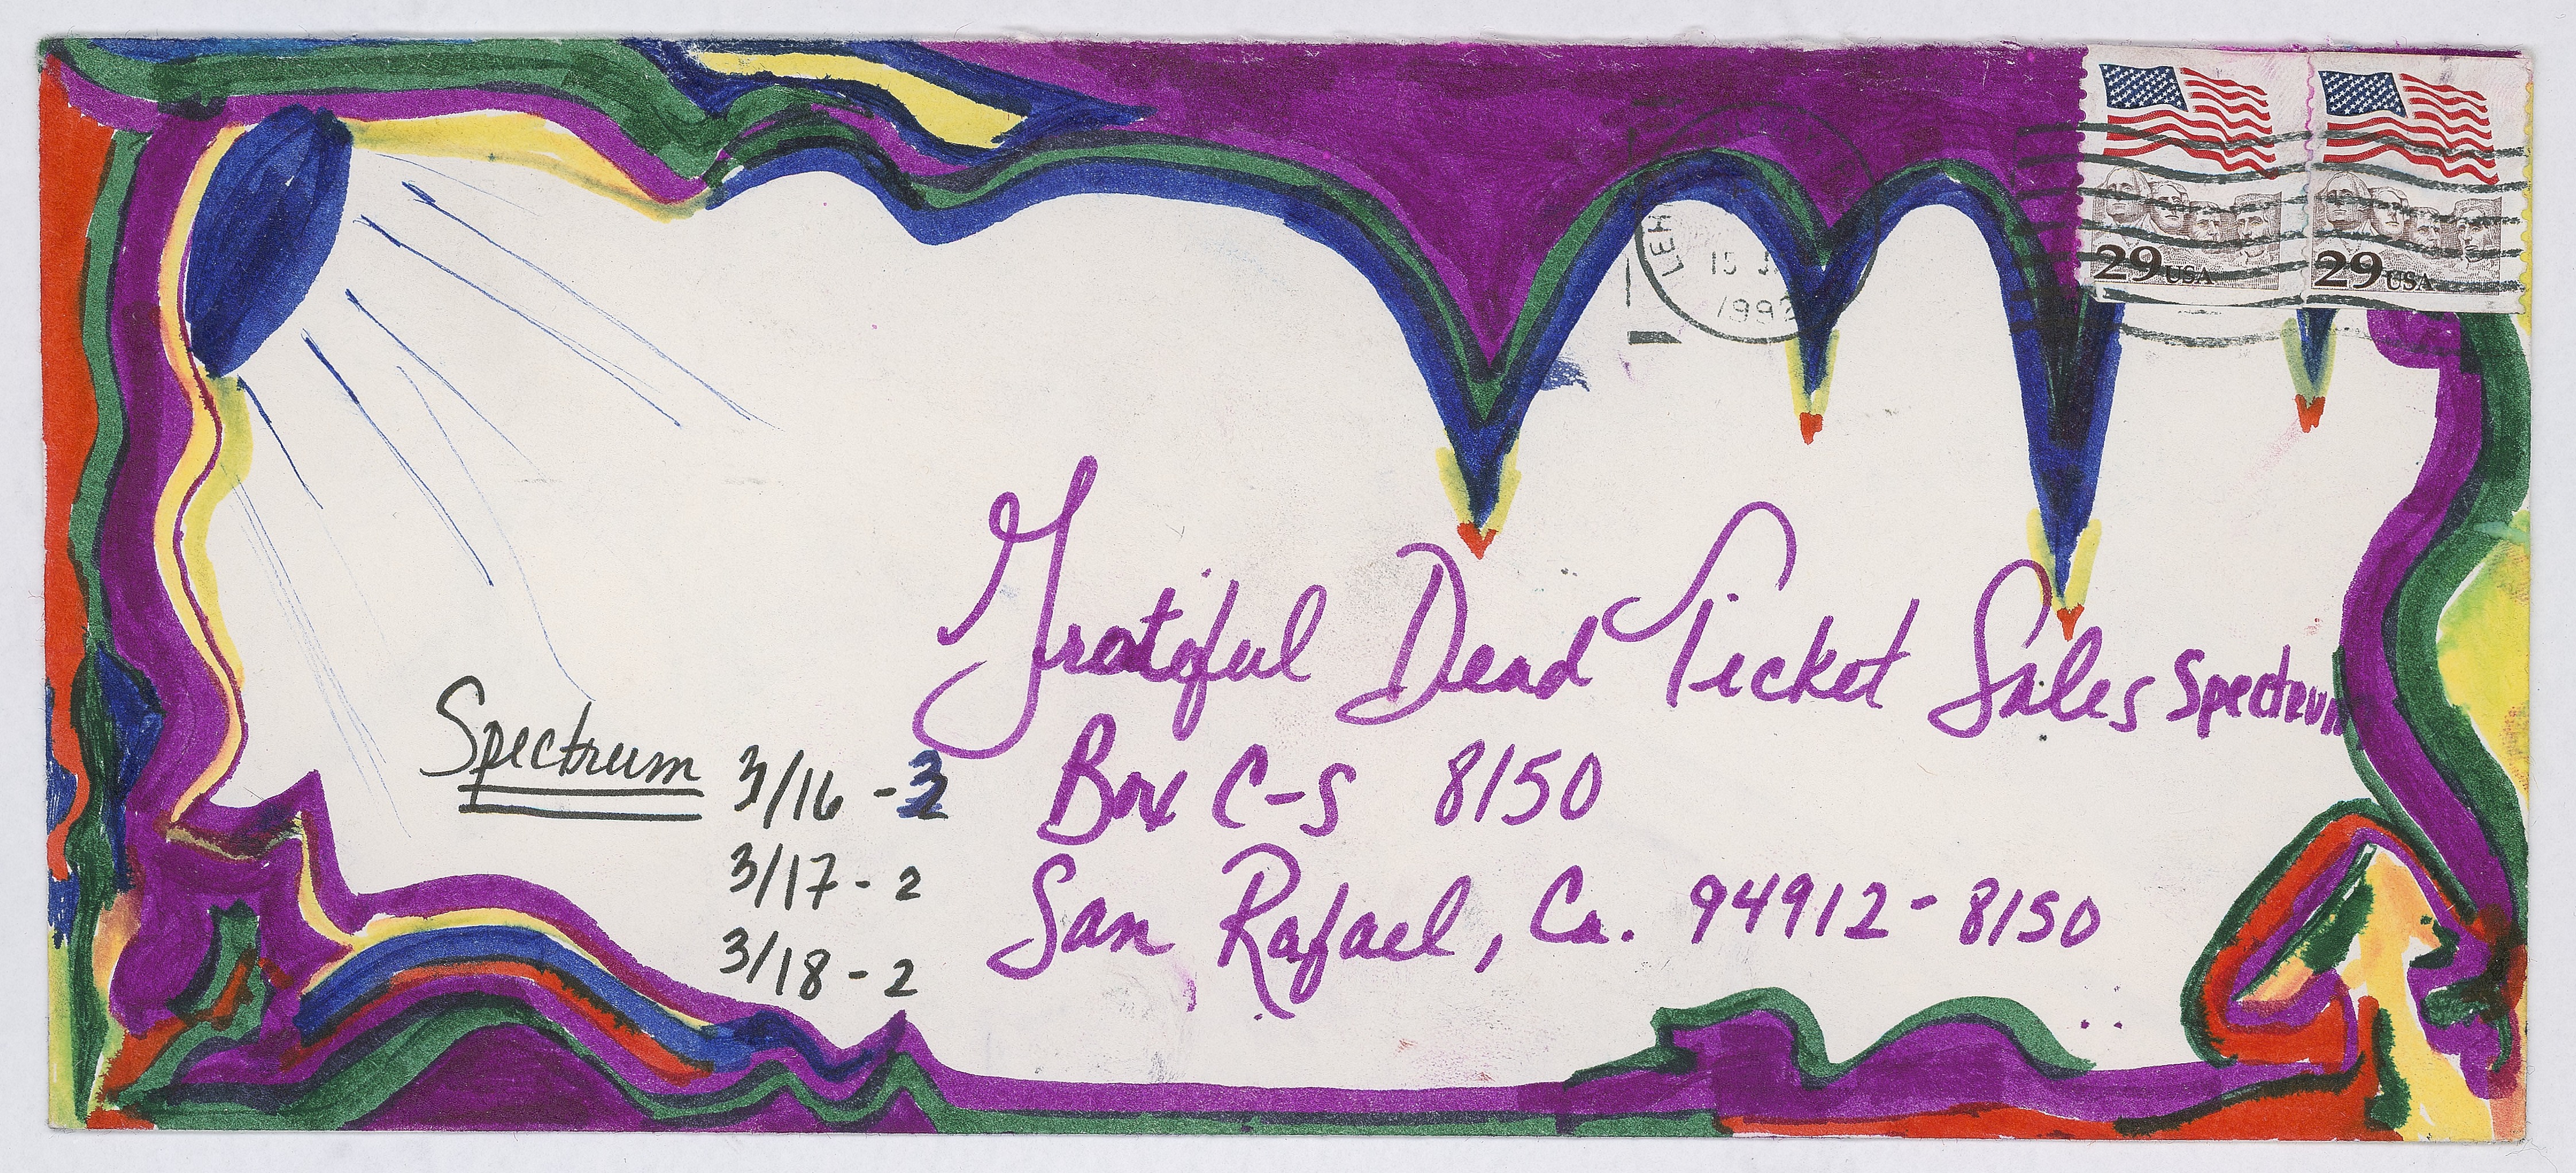 29 USA 29 USA
LEH
15 J
1992
Grateful Dead Ticket Sales Spectrum
Box C-S 8150
San Rafael, Ca. 94912-8150
Spectrum 3/16 -
3/17 - 2
3/18 - 2